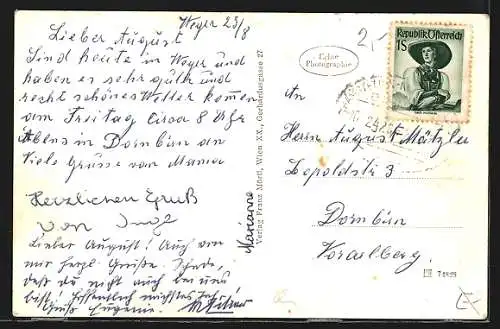 Weyer 23/8
Lieber August
Sind heute in Weyer und
haben es sehr gutt und
recht schönes Wetter komen
am Freitag Circa 8 Uhr
Abens in Dornbirn an
Viele Grüsse von Mama
Herzlichen Gruß
von
Marianne
Lieber August! Auch von
mir herzl. Grüße. Schade,
daß du nicht auch bei uns
bist. Hoffentlich nächstes Jahr
Gruß Eugenie.
Verlag Franz Mörtl, Wien XX., Gerhardusgasse 27
Echte
Photographie
Republik Österreich
1S
An
Herrn August Mätzler
Leopoldstr 3
Dornbirn
Voralberg.